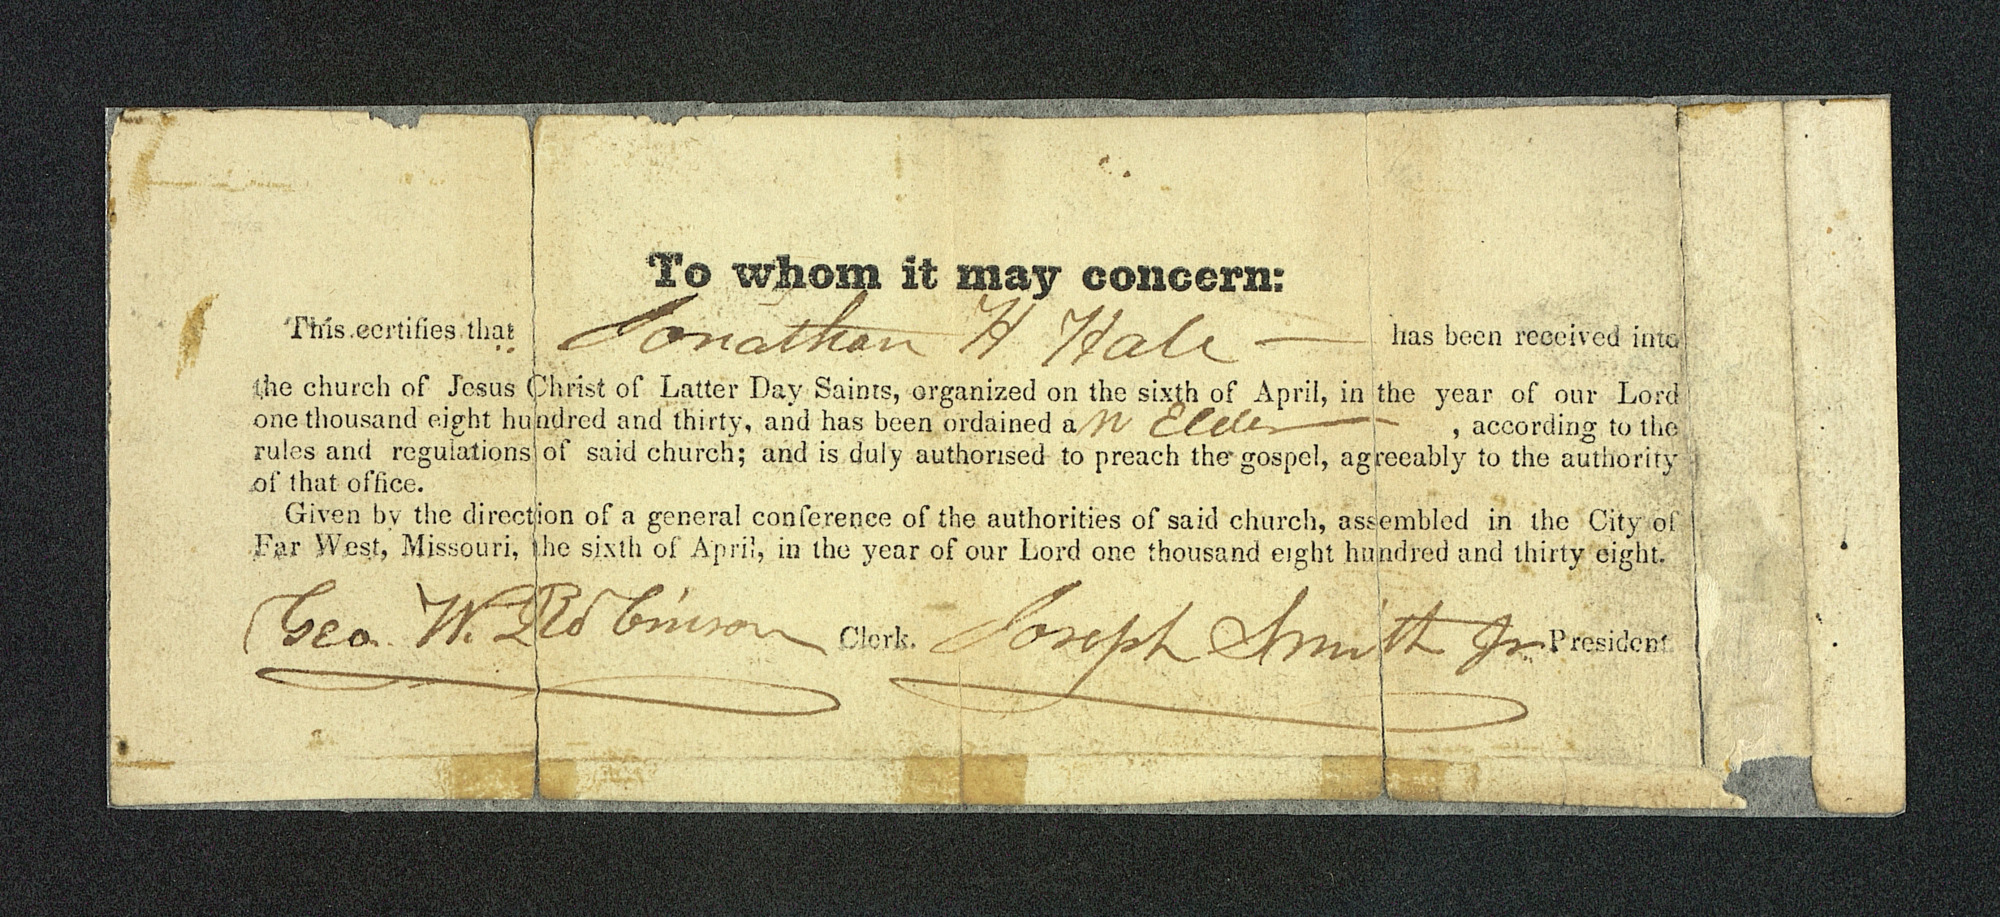 To whom it may concern:
This certifies that Jonathan H Hale — has been received into
the church of Jesus Christ of Latter Day Saints, organized on the sixth of April, in the year of our Lord
one thousand eight hundred and thirty, and has been ordained an Elder — , according to the
rules and regulations of said church; and is duly authorised to preach the gospel, agreeably to the authority
of that office.
Given by the direction of a general conference of the authorities of said church, assembled in the City of
Far West, Missouri, the sixth of April, in the year of our Lord one thousand eight hundred and thirty eight.
Geo. W. Robinson Clerk. Joseph Smith Jr. President